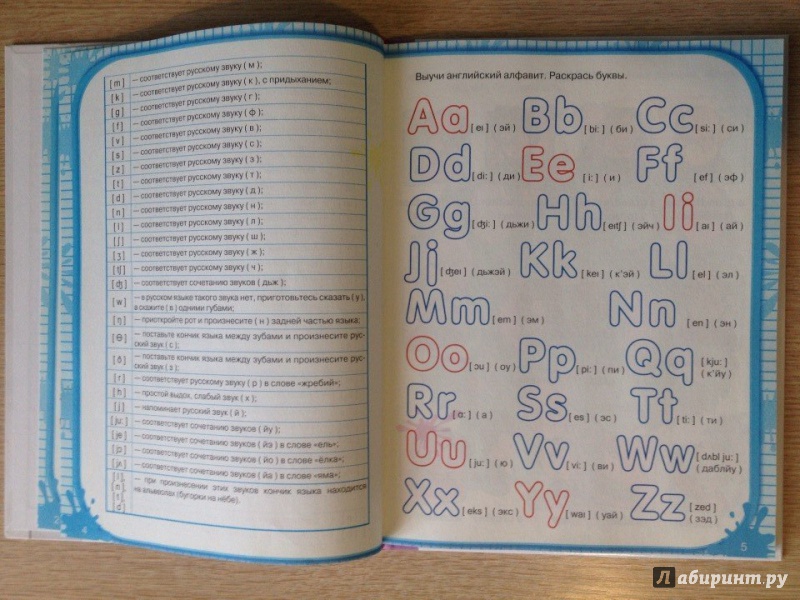 [m] — соответствует русскому звуку ( м );
[k] — соответствует русскому звуку ( к ), с придыханием;
[g] — соответствует русскому звуку ( г );
[f] — соответствует русскому звуку ( ф );
[v] — соответствует русскому звуку ( в );
[s] — соответствует русскому звуку ( с );
[z] — соответствует русскому звуку ( з );
[t] — соответствует русскому звуку ( т );
[d] — соответствует русскому звуку ( д );
[n] — соответствует русскому звуку ( н );
[l] — соответствует русскому звуку ( л );
[ʃ] — соответствует русскому звуку ( ш );
[ʒ] — соответствует русскому звуку ( ж );
[ʧ] — соответствует русскому звуку ( ч );
[ʤ] — соответствует сочетанию звуков ( дьж );
[w] — в русском языке такого звука нет, приготовьтесь сказать ( у ),
а скажите ( в ) одними губами;
[ŋ] — приоткройте рот и произнесите ( н ) задней частью языка;
[Θ] — поставьте кончик языка между зубами и произнесите рус-
ский звук ( с );
[ð] — поставьте кончик языка между зубами и произнесите рус-
ский звук ( з );
[r] — соответствует русскому звуку ( р ) в слове «жребий»;
[h] — простой выдох, слабый звук ( х );
[j] — напоминает русский звук ( й );
[ju:] — соответствует сочетанию звуков ( йу );
[je] — соответствует сочетанию звуков ( йэ ) в слове «ель»;
— соответствует сочетанию звуков ( йо ) в слове «ёлка»;
— соответствует сочетанию звуков ( йа ) в слове «яма»;
[l]
[n] — при произнесении этих звуков кончик языка находится
[t] на альвеолах (бугорки на нёбе).
[d]
2
4
Выучи английский алфавит. Раскрась буквы.
Aa [ eı ] ( эй ) Bb [ bi: ] ( би ) Cc [ si: ] ( си )
Dd [ di: ] ( ди ) Ee [ i: ] ( и ) Ff [ ef ] ( эф )
Gg [ ʤi: ] ( дьжи ) Hh [ eıʧ ] ( эйч ) Ii [ aı ] ( ай )
Jj [ ʤeı ] ( дьжэй ) Kk [ keı ] ( к'эй ) Ll [ el ] ( эл )
Mm [ em ] ( эм ) Nn [ en ] ( эн )
Oo [ ɔu ] ( оу ) Pp [ pi: ] ( пи ) Qq [ kju: ] ( к'йу )
Rr [ ɑ: ] ( а ) Ss [ es ] ( эс ) Tt [ ti: ] ( ти )
Uu [ ju: ] ( ю ) Vv [ vi: ] ( ви ) Ww [ dʌbl ju: ] ( даблйу )
Xx [ eks ] ( экс ) Yy [ waı ] ( уай ) Zz [ zed ] ( зэд )
5
Лабиринт.ру